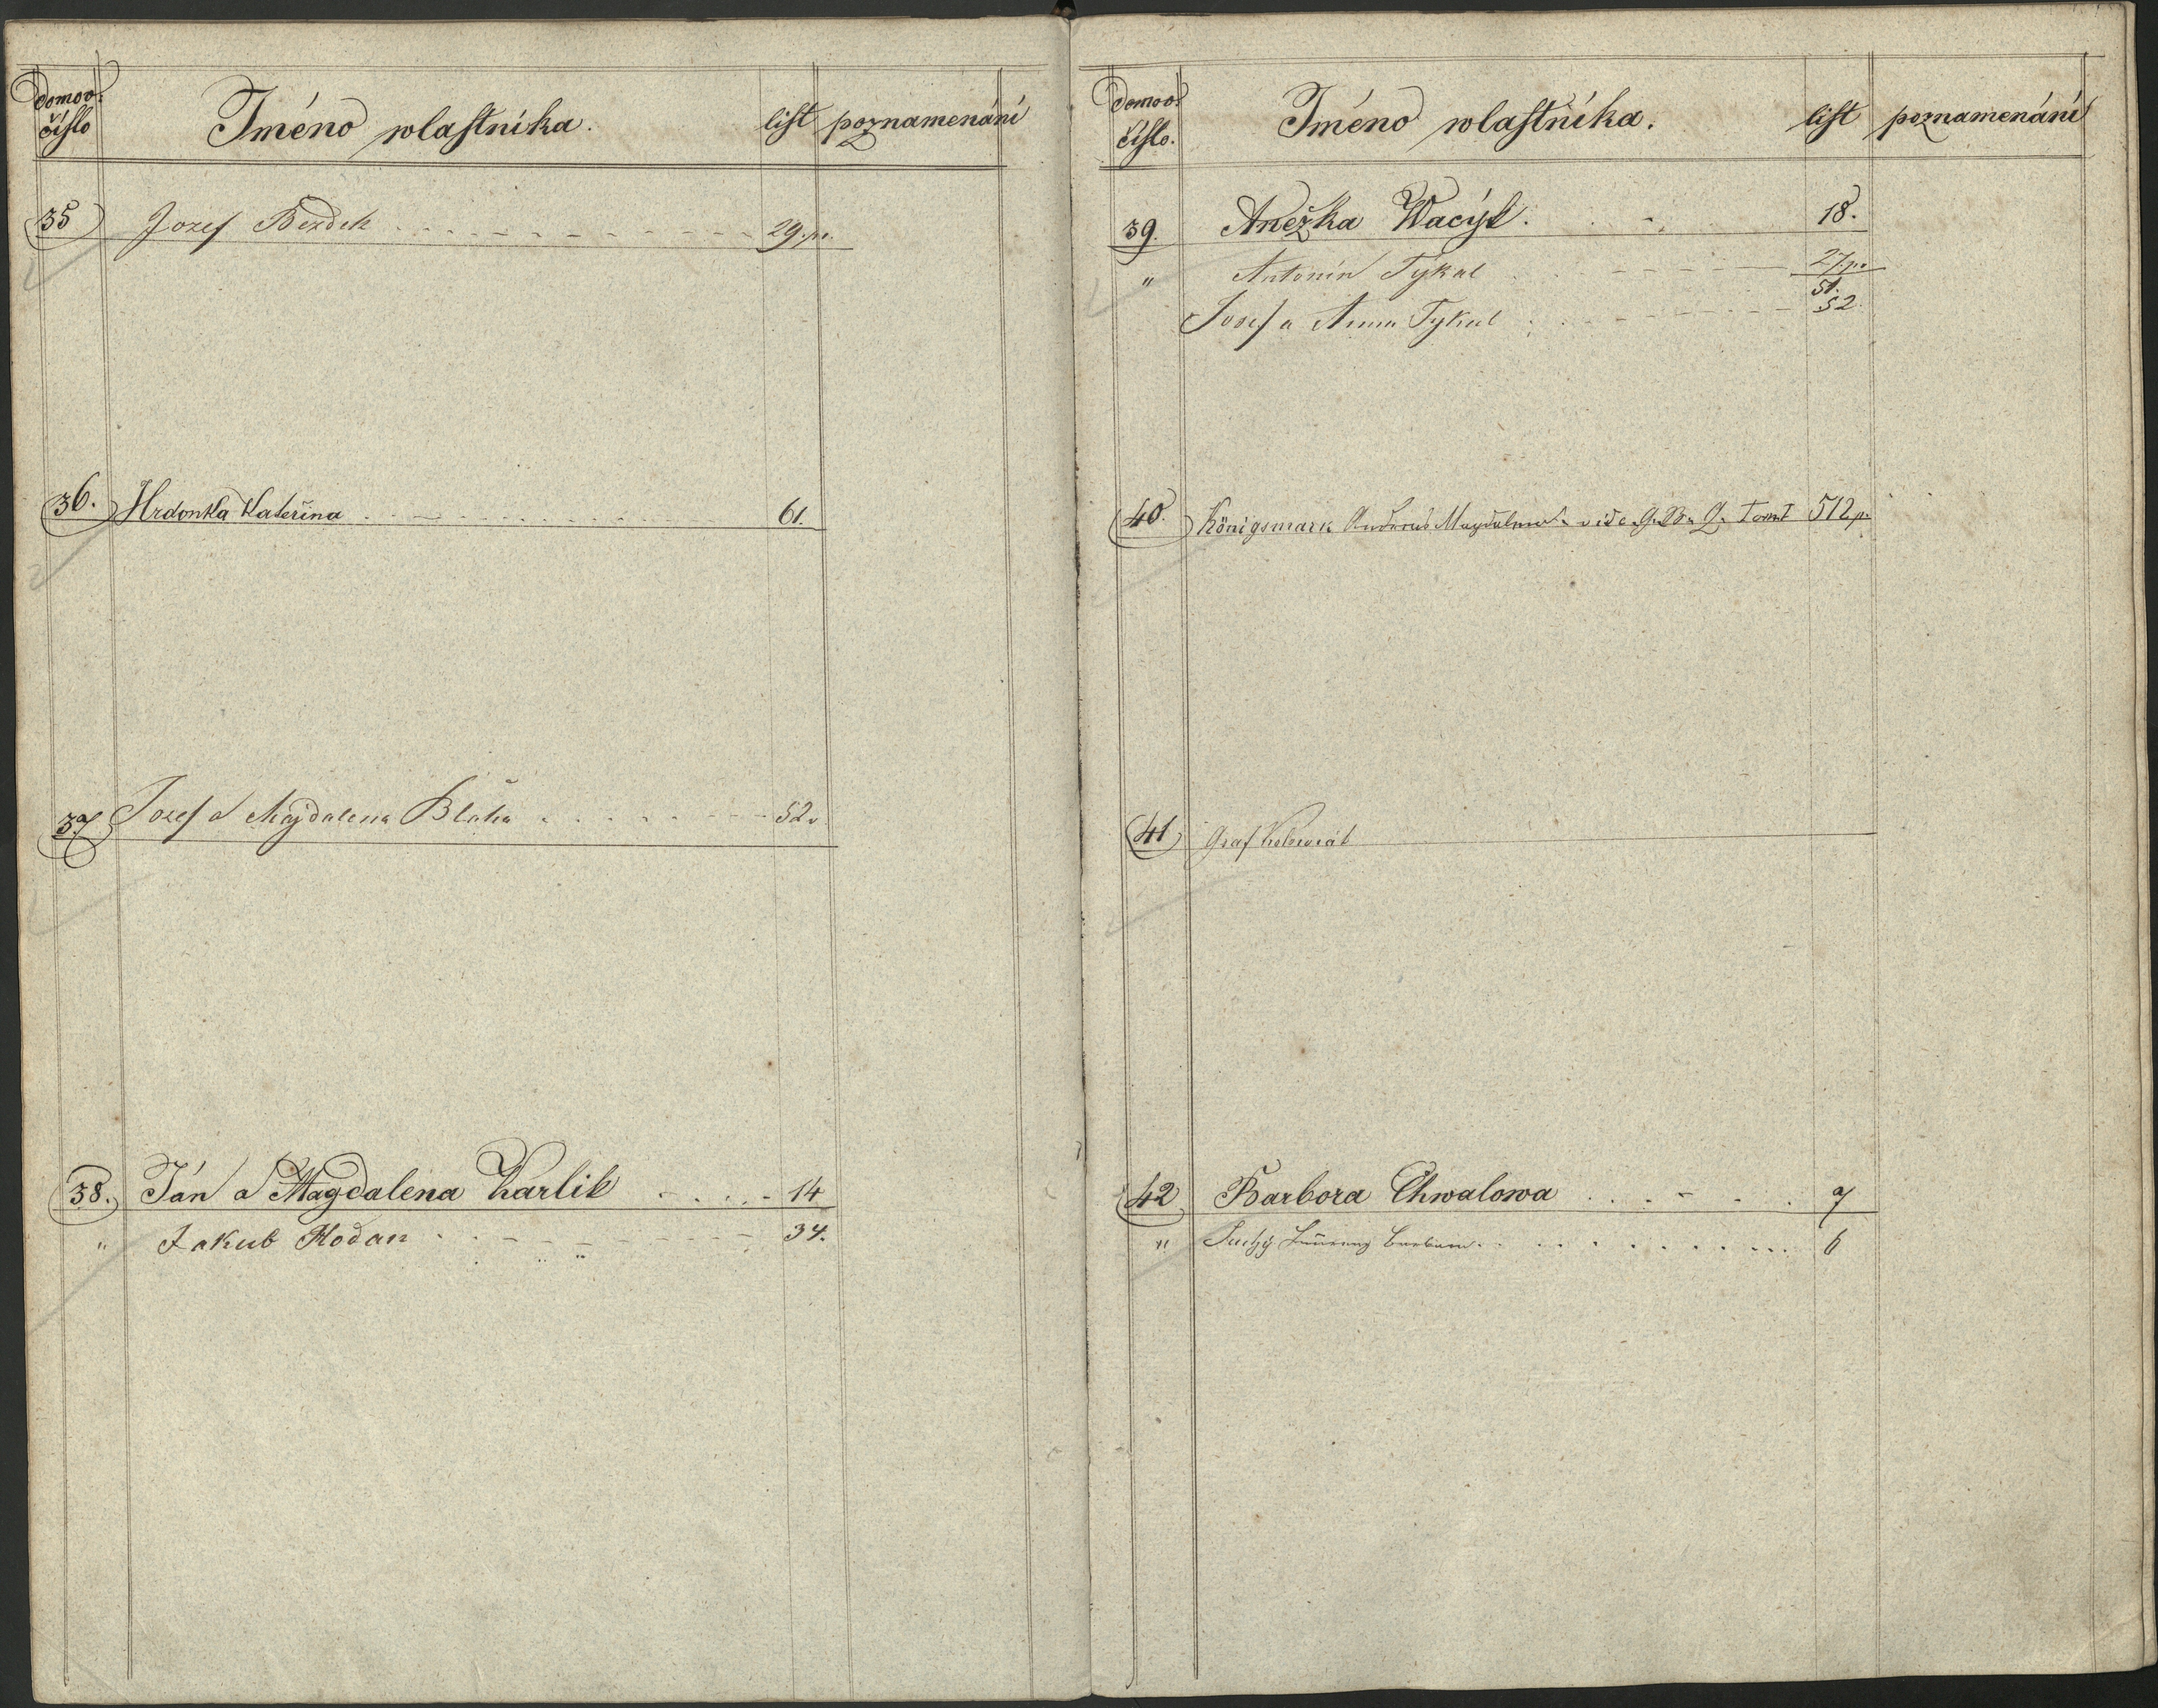 domov. číslo Jméno wlastníka. list poznamenání
35 Jozef Bezdek 29. p.
36. Hrdonka Kateřina 61.
37 Jozef a Majdalena Bláha 52.
38. Ján a Magdalena Karlik 14
" Jakub Hodan 34.
domov. číslo. Jméno wlastníka. list poznamenání
39. Anežka Wacýk 18.
" Antonín Týkal 27. p.
51.
Josef a Anna Tykal 52.
40. Königsmark Magdalena vide G. B. Tom I 512 p.
41 Graf Kolowrat
42 Barbora Chwalowa 7
" Suchý Barbara 6